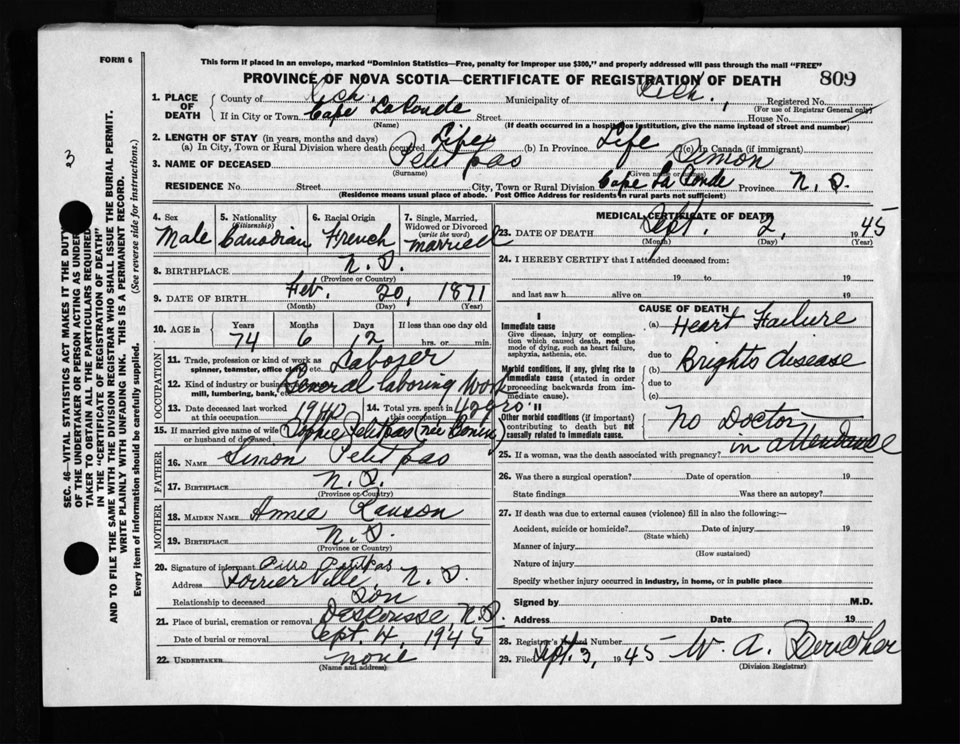 FORM 6
This form if placed in an envelope, marked "Dominion Statistics—Free, penalty for improper use $300," and properly addressed will pass through the mail "FREE"
PROVINCE OF NOVA SCOTIA—CERTIFICATE OF REGISTRATION OF DEATH 809
SEC. 46—VITAL STATISTICS ACT MAKES IT THE DUTY
OF THE UNDERTAKER OR PERSON ACTING AS UNDER-
TAKER TO OBTAIN ALL THE PARTICULARS REQUIRED
IN THE "CERTIFICATE OF REGISTRATION OF DEATH"
AND TO FILE THE SAME WITH THE DIVISION REGISTRAR WHO SHALL ISSUE THE BURIAL PERMIT.
WRITE PLAINLY WITH UNFADING INK. THIS IS A PERMANENT RECORD.
Every item of information should be carefully supplied. (See reverse side for instructions.)
3
1. PLACE OF DEATH County of Rich. Municipality of Rich. Registered No.
(For use of Registrar General only)
If in City or Town Cape La Ronde Street House No.
(Name) (If death occurred in a hospital or institution, give the name instead of street and number)
2. LENGTH OF STAY (in years, months and days)
(a) In City, Town or Rural Division where death occurred Life (b) In Province Life (c) In Canada (if immigrant)
3. NAME OF DECEASED Petitpas Simon
(Surname) (Given name or names)
RESIDENCE No. Street City, Town or Rural Division Cape La Ronde Province N. S.
(Residence means usual place of abode. Post Office Address for residents in rural parts not sufficient)
4. Sex Male
5. Nationality (Citizenship) Canadian
6. Racial Origin French
7. Single, Married, Widowed or Divorced (write the word) married
8. BIRTHPLACE N. S.
(Province or Country)
9. DATE OF BIRTH Feb. 20, 1871
(Month) (Day) (Year)
10. AGE in Years Months Days If less than one day old
74 6 12 hrs. or min.
OCCUPATION
11. Trade, profession or kind of work as spinner, teamster, office clerk, etc. Laborer
12. Kind of industry or business, mill, lumbering, bank, etc. General laboring Work
13. Date deceased last worked at this occupation 1940
14. Total yrs. spent in this occupation 40 yrs
15. If married give name of wife or husband of deceased Sophie Petitpas (nee Bonin)
FATHER
16. NAME Simon Petitpas
17. BIRTHPLACE N. S.
(Province or Country)
MOTHER
18. MAIDEN NAME Annie
19. BIRTHPLACE N. S.
(Province or Country)
20. Signature of informant Petitpas
Address N. S.
Relationship to deceased son
21. Place of burial, cremation or removal Descousse, N.S.
Date of burial or removal Sept. 4, 1945
22. UNDERTAKER none
(Name and address)
MEDICAL CERTIFICATE OF DEATH
23. DATE OF DEATH Sept. 2, 1945
(Month) (Day) (Year)
24. I HEREBY CERTIFY that I attended deceased from:
19 to 19
and last saw h alive on 19
CAUSE OF DEATH
I
Immediate cause
Give disease, injury or complication which caused death, not the mode of dying, such as heart failure, asphyxia, asthenia, etc.
(a) Heart Failure
due to
Morbid conditions, if any, giving rise to immediate cause (stated in order proceeding backwards from immediate cause)
(b) Brights disease
due to
(c)
II
Other morbid conditions (if important) contributing to death but not causally related to immediate cause.
No Doctor
in attendance
25. If a woman, was the death associated with pregnancy?
26. Was there a surgical operation? Date of operation 19
State findings Was there an autopsy?
27. If death was due to external causes (violence) fill in also the following:—
Accident, suicide or homicide? Date of injury 19
(State which)
Manner of injury
(How sustained)
Nature of injury
Specify whether injury occurred in industry, in home, or in public place
Signed by M.D.
Address Date 19
28. Registrar's Record Number
29. Filed Sept. 3, 1945 W. A.
(Division Registrar)